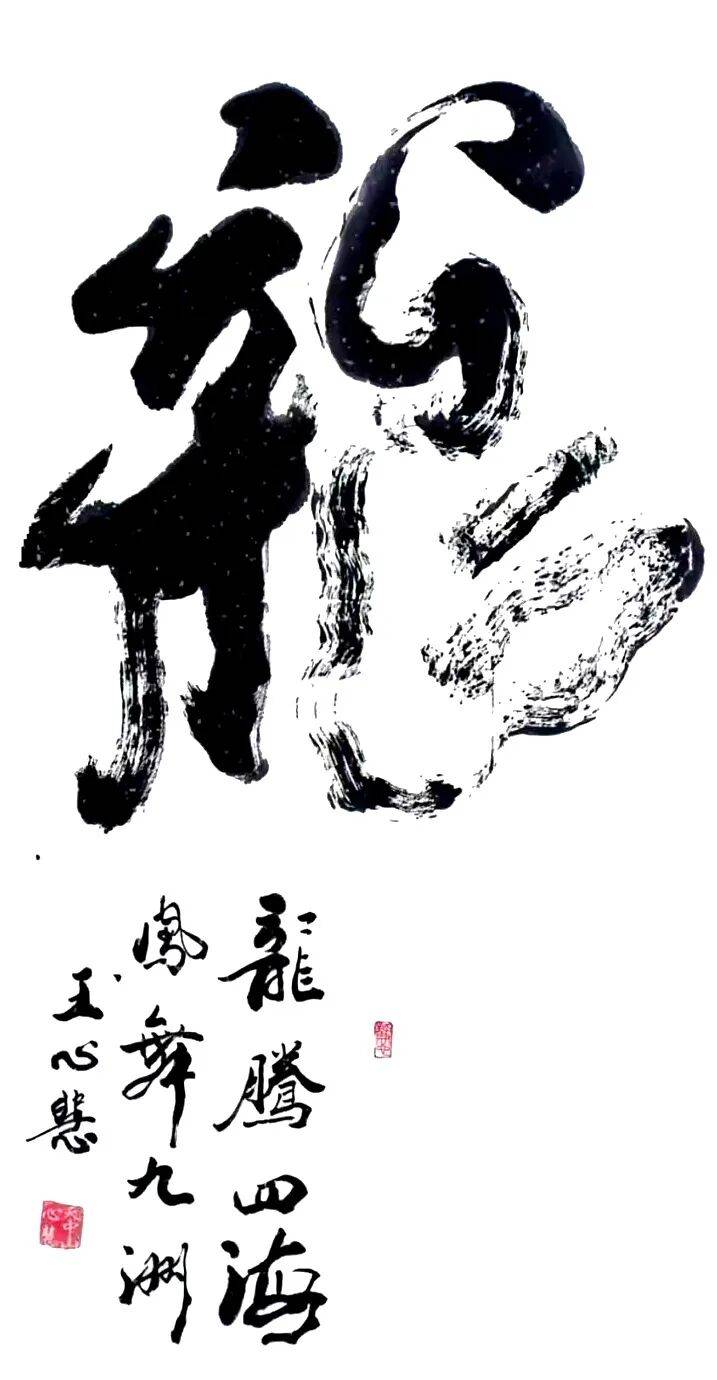 龍
龍騰四海
鳳舞九洲
玉心慧